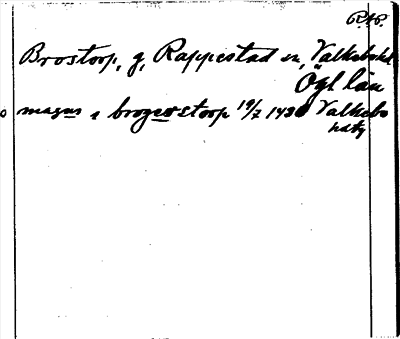 R.A.P.
Brostorp, g, Rappestad sn, Valkebo hd
Ögl län
magns i brogerstorp 19/7 1430 Valkebo